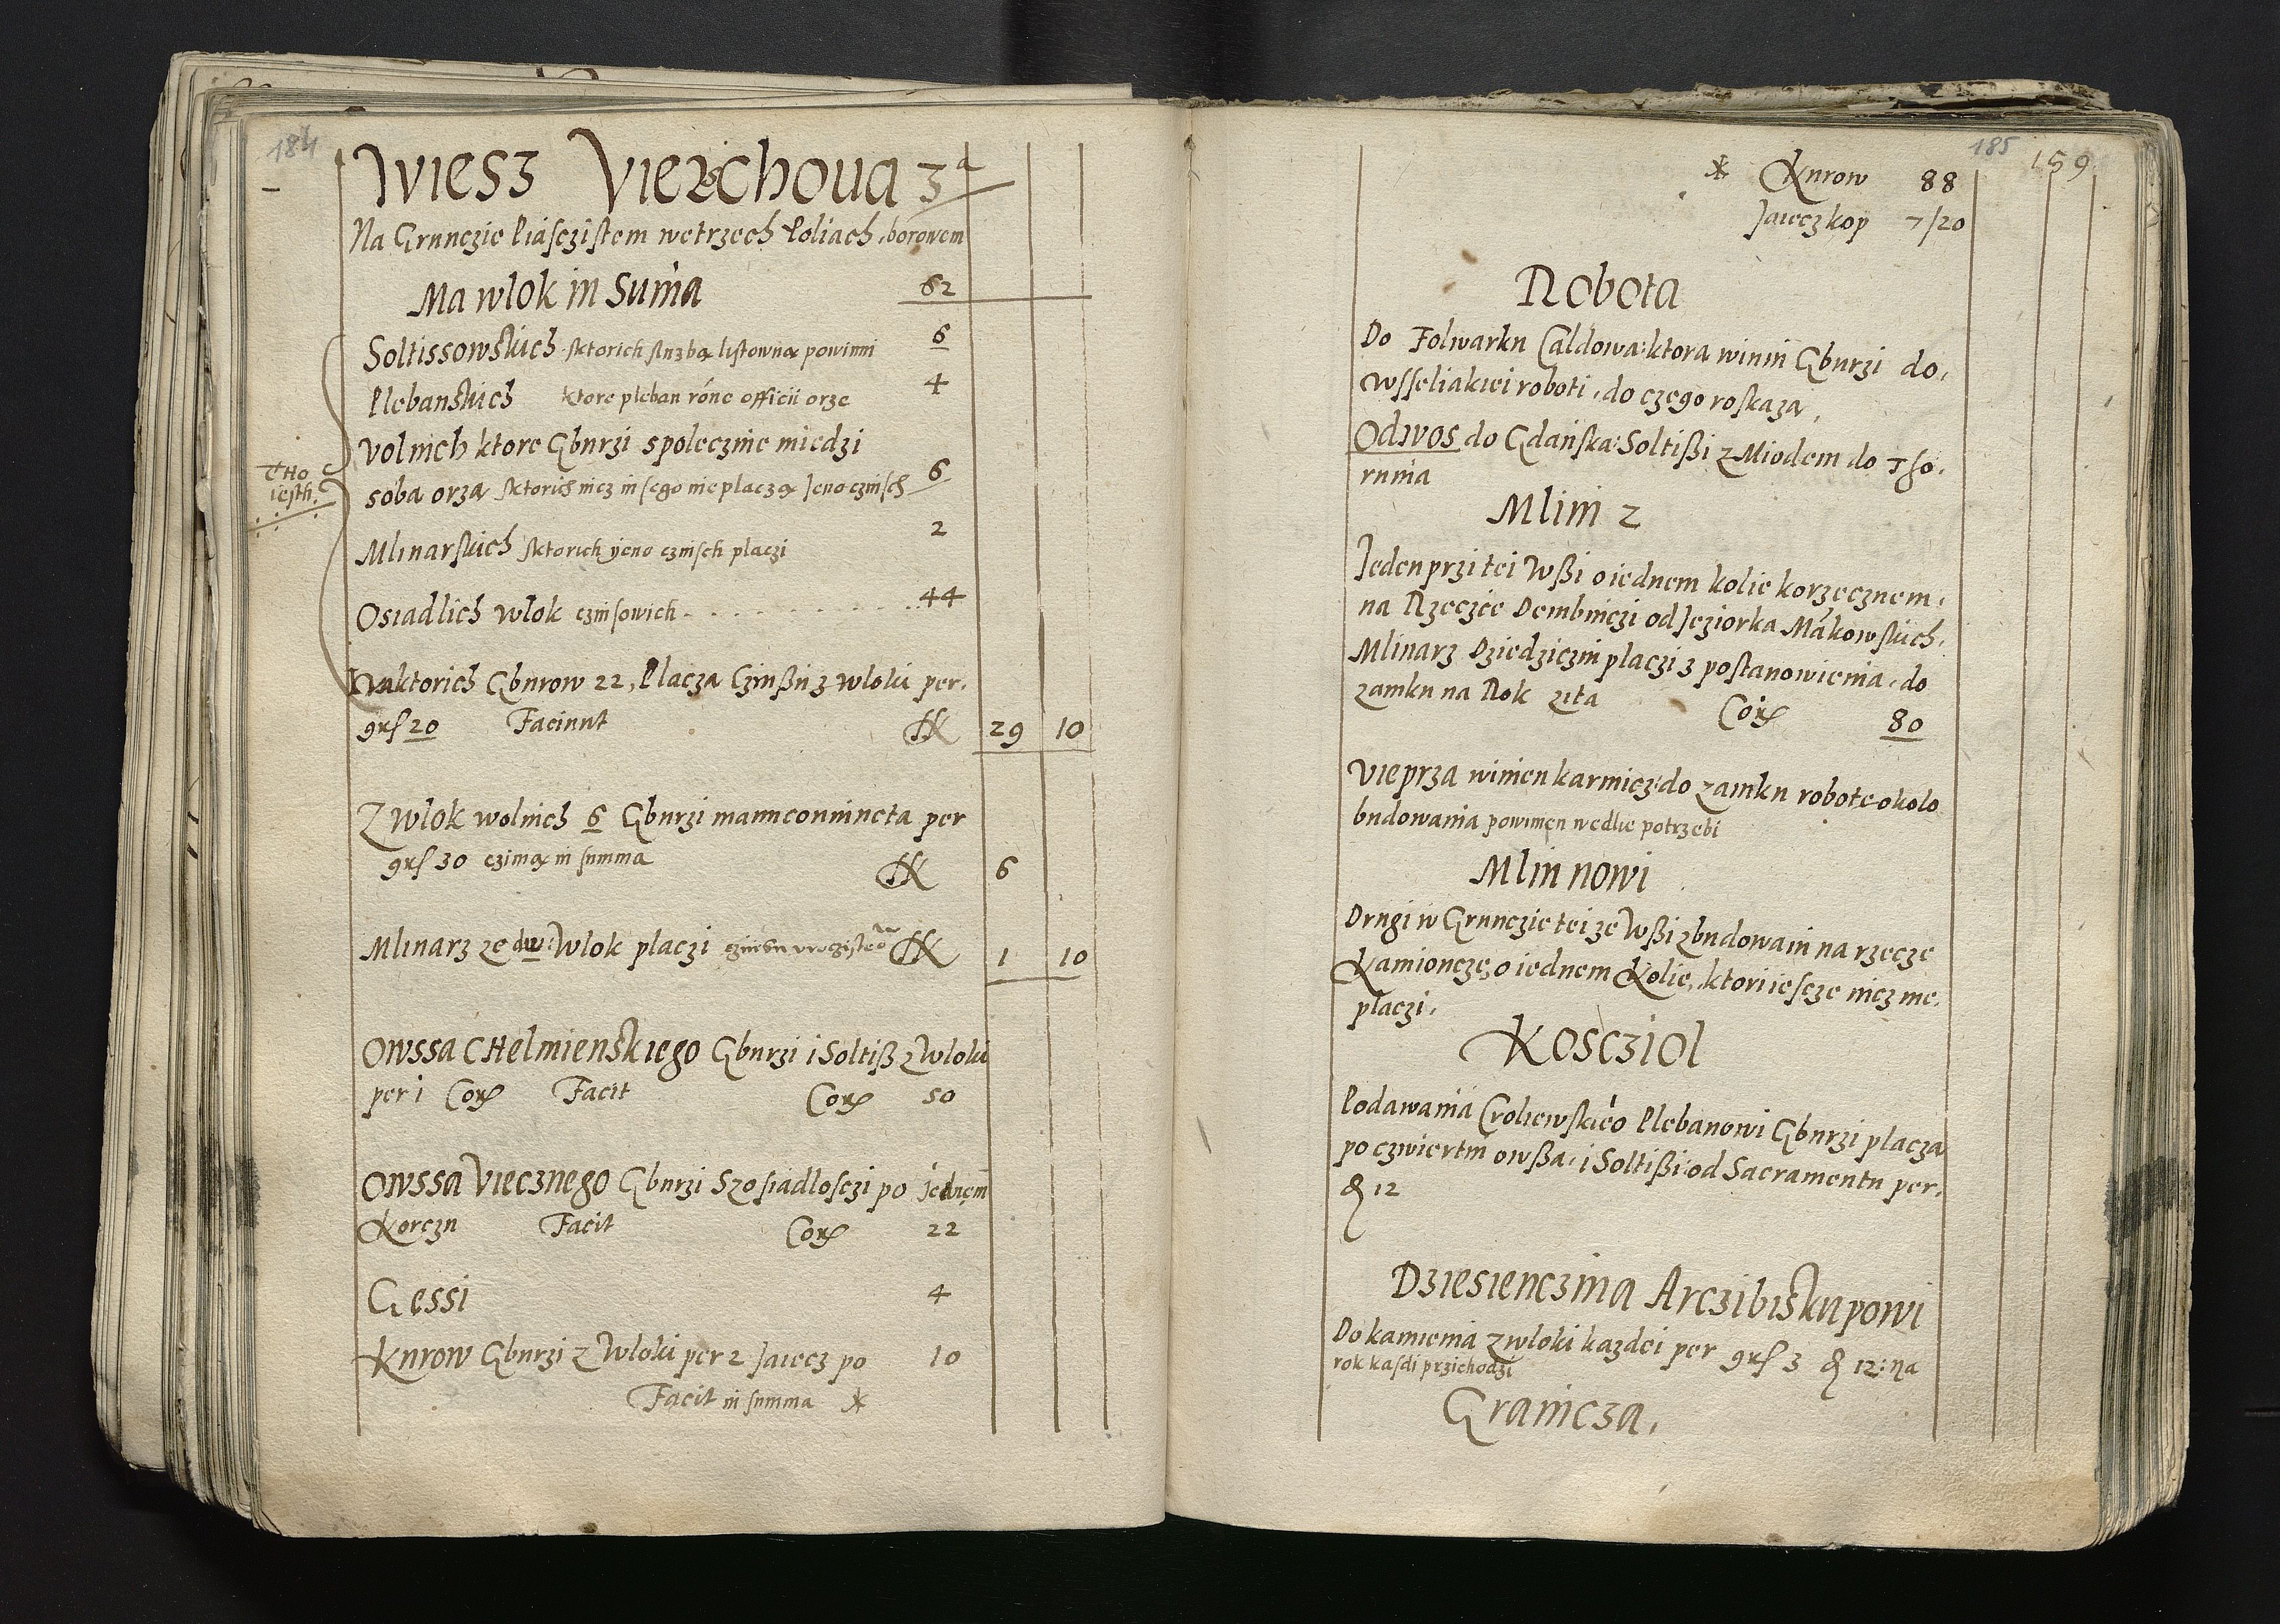 184
Wiesz Vierzchoua 3a
Na Grunczie Piasczistem wetrzech Poliach, borowem
Ma wlok in Suma 62
Soltissowskich ktorich sluzbą listowną powinni 6
Plebanskich ktore pleban róne officii orze 4
Volnich ktore Gburzi spolecznie miedzi
soba orza ktorich nicz inszego nie placzą Jeno czinsch 6
Tho
iesth.
Mlinarskich ktorich jeno czinsch placzi 2
Osiadlich wlok czinsowich 44
Na ktorich Gburow 22, Placza Czinssu z wloki per.
grs 20 Faciunt 29 10
Z wlok wolnich 6 Gburzi manuconiuncta per
grs 30 czimą in summa 6
Mlinarz ze dw: Wlok placzi czinssu 1 10
Owssa CHelmienskiego Gburzi i Soltiß z Wloki
per 1 Cor Facit Cor 50
Owssa Viecznego Gburzi Szosiadlosczi po jednem
Korczu Facit Cor 22
Gessi 4
Kurow Gburzi z Wloki per 2 Jaiecz po 10
Facit in summa *
185 159
* Kurow 88
Jaiecz kop 7/20
Robota
Do Folwarku Caldowa: ktora winni Gburzi do,
wsseliakiei roboti, do czego roskaza,
Odwos do Gdańska: Soltißi z Miodem do Tho,
runia
Mlini 2
Jeden przi tei Wßi o iednem kolie korzecznem,
na Rzeczce Dembniczi od Jeziorka Mąkowskich,
Mlinarz Dziedziczni placzi z postanowienia, do
zamku na Rok zita Cor 80
Vieprza winien karmicz: do zamku robote okolo
budowania powinien wedlie potrzebi
Mlin nowi
Drugi w Grunczie tei ze Wßi zbudowani na rzecze
Kamioncze, o iednem Kolie, ktori iescze nicz nie,
placzi,
Kosczioł
Podawania Croliewskieo Plebanowi Gburzi placza
po czwiertni owßa, i Soltißi: od Sacramentu per,
₰ 12
Dziesienczina Arczibiskupowi
Do kamienia z wloki kazdei per grs 3 ₰ 12: na
rok kasdi przichodzi
Granicza,